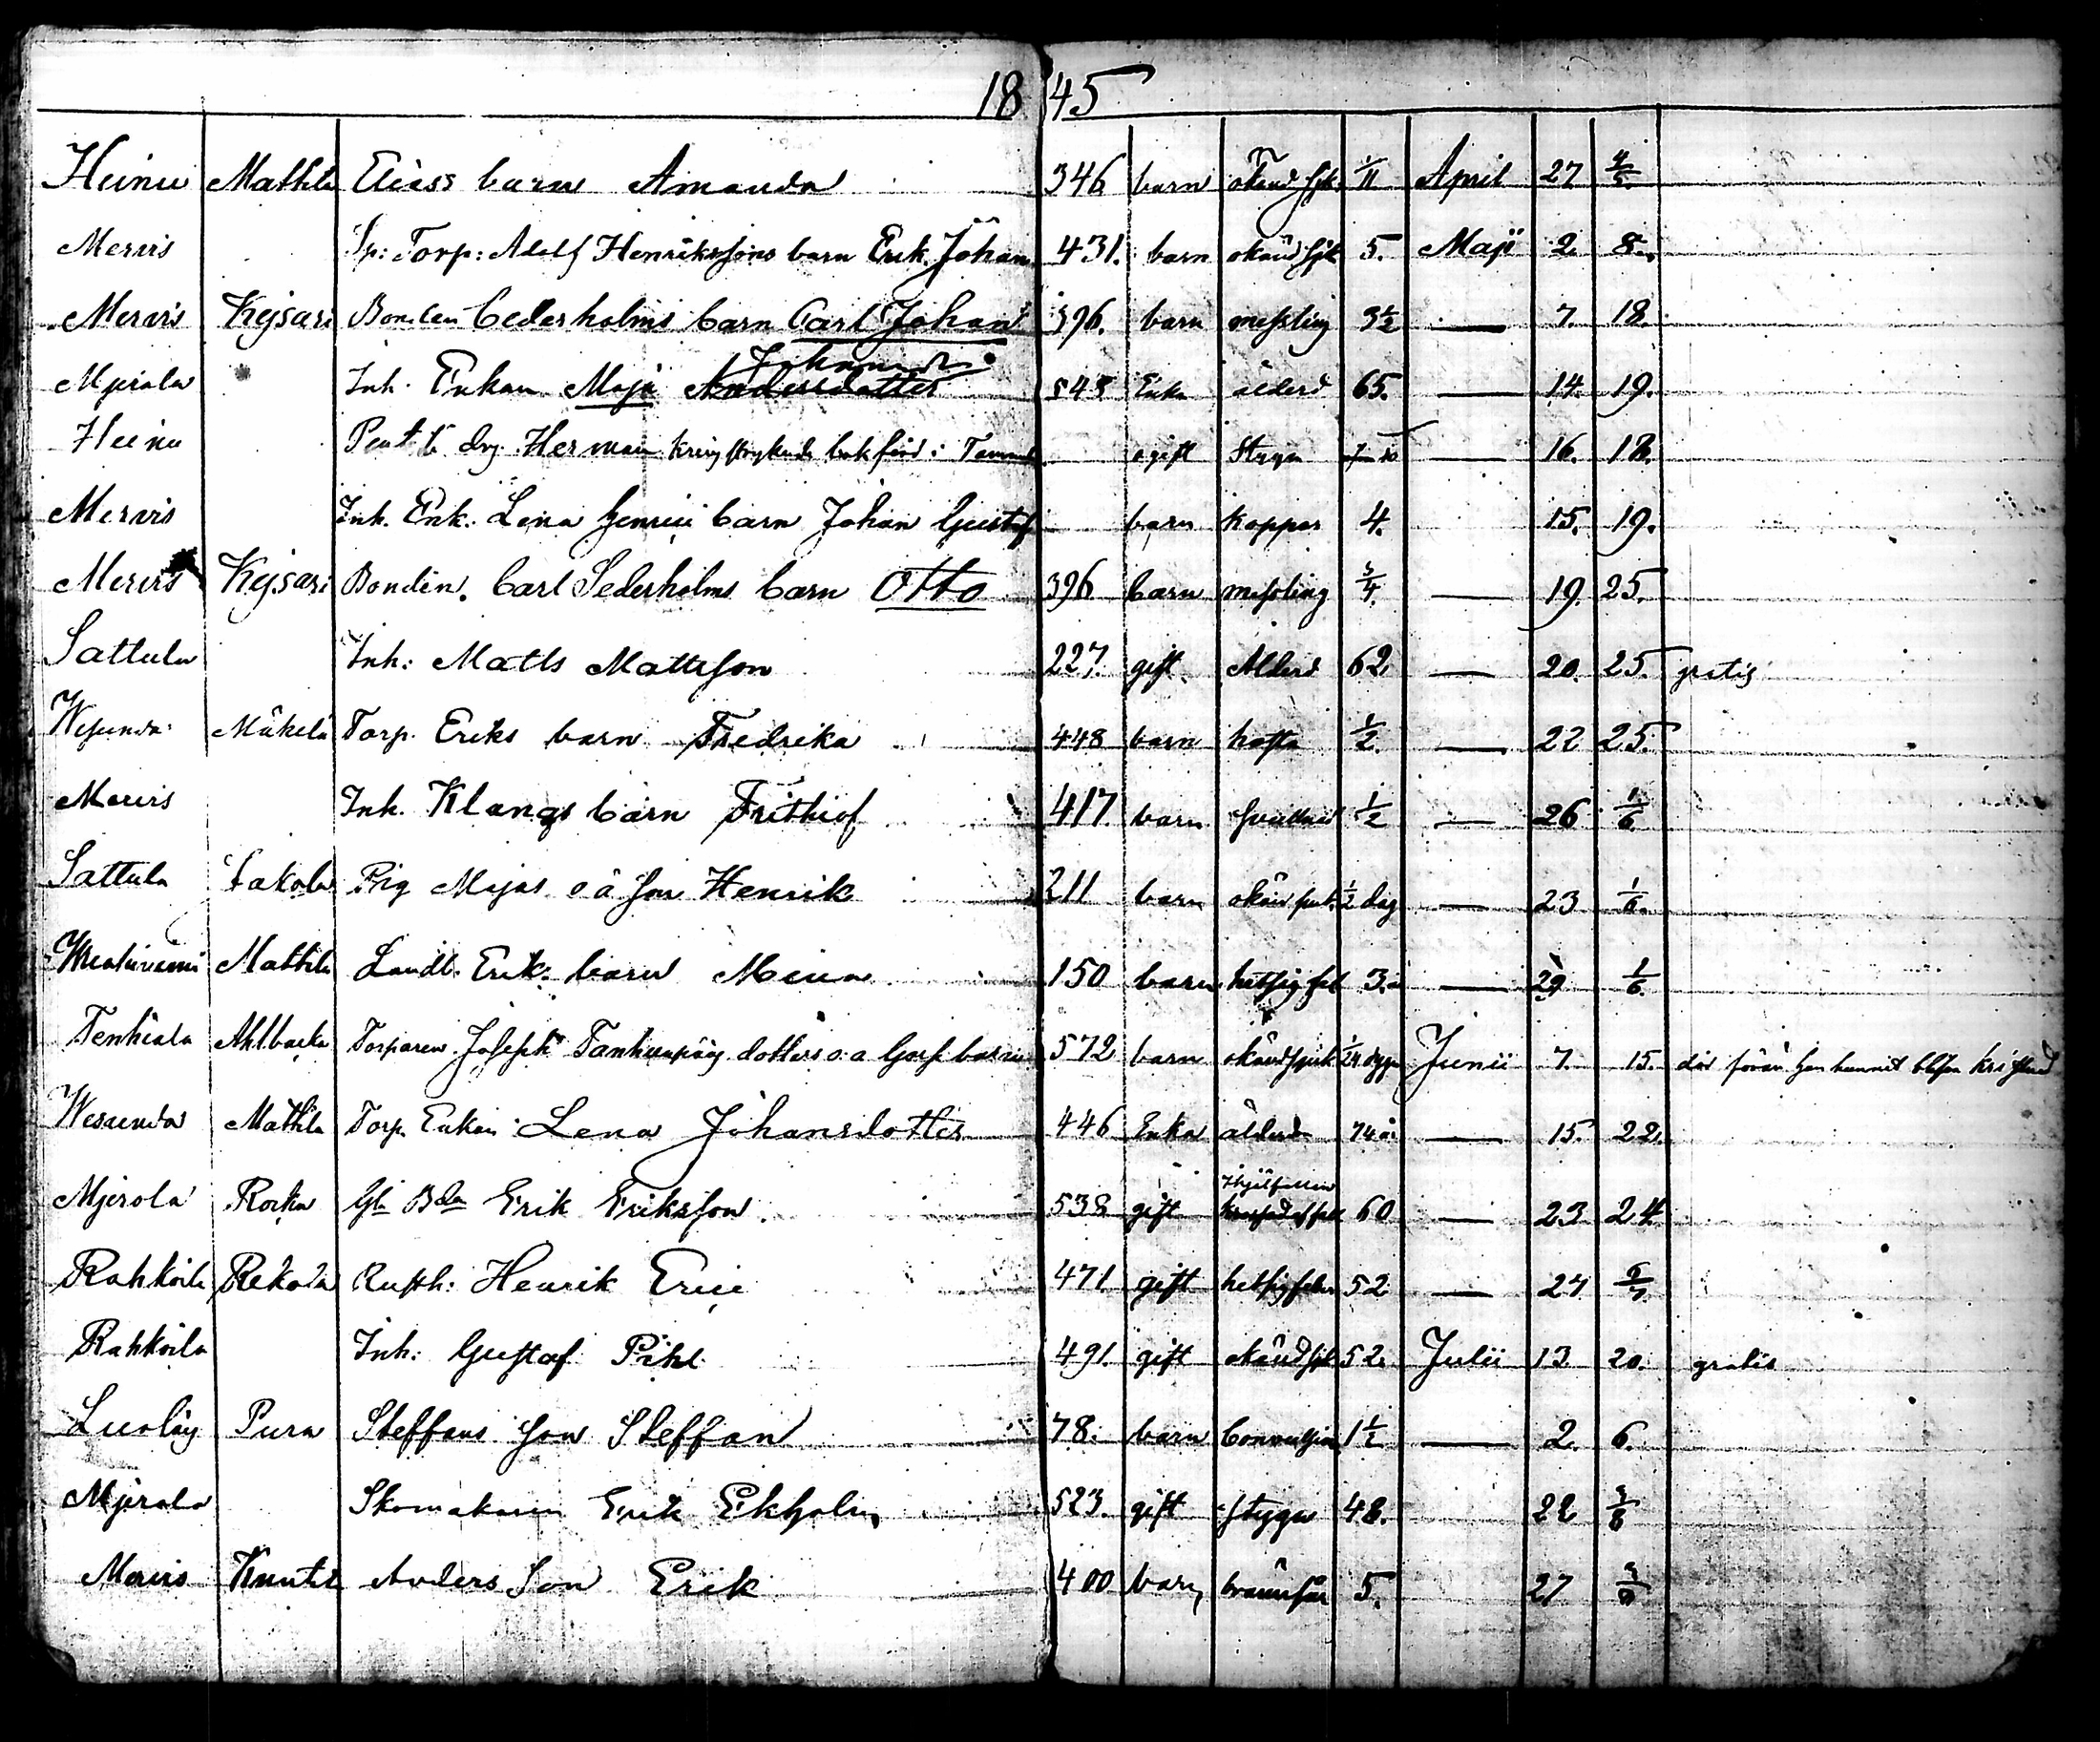 1845
Heinu Mattila Eliass barn Amanda 346 barn okänd sjuk 1/11 April 27 4/5
Mervis Sp: Torp: Adolf Henrikssons barn Erik Johan 431. barn okänd sjuk 5. Maji 2. 8.
Mervis Kejsari Bonden Cederholms barn Carl Johan 396. barn messling 3 1/2 — 7. 18.
Johansdr
Mjerola Inh. Enkan Maja Andersdotter 543 Enka ålderd 65. — 14. 19.
Heinu Herman kringstrykande i ogift Stygn — 16. 18.
Mervis Inh. Enk. Lena Henrici barn Johan Gustaf barn koppor 4. 15. 19.
Mervis Kejsari Bonden. Carl Sederholms barn Otto 396 barn messling 3/4 — 19. 25.
Sattula Inh: Matts Mattsson 227. gift. Ålderd 62 — 20. 25. gratis
Wesunda Mäkelä Torp. Eriks barn Fredrika 448 barn hosta 1/2. — 22 25.
Mervis Inh. Klangs barn Frithiof 417. barn 1/2 — 26 1/6
Sattula Jakola Pig Majas o ä son Henrik 211 barn okänd sjuk. 1/2 dag — 23 1/6.
Mattila Landb. Erik. barn Mina 150 barn hetsig feb 3. — 29 1/6.
Tenhiala Ahlbacka Torparen Joseph dotters o. ä. barn 572 barn okänd sjuk 1/24 dygn Junii 7. 15. död förän han hunnit blifva kristnad
Wesunda Mattila Torp. Enkan Lena Johansdotter 446 Enka ålderd 74 — 15. 22.
Mjerola Rocka Gl. Bdn Erik Eriksson. 538 gift Ihjälfallen 60 — 23 24
Rahkoila Rekola Rusth: Henrik Erici 471. gift hetsig feber 52 — 27 6/7
Rahkoila Inh: Gustaf Pihl 491. gift okänd sjuk 52. Julii 13. 20. gratis
Luolaij Pura Steffans son Steffan 78. barn Convulsion 1 1/2 — 2. 6.
Mjerola Skomakaren Erik Ekholm 523. gift stygn 48. 22 3/8
Mervis Knutila Anders son Erik 400 barn 5. 27 3/8